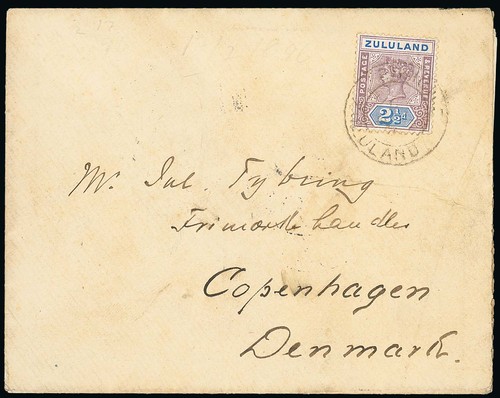 ZULULAND
POSTAGE & REVENUE
2½d
ULAND
Mr. Jul. Tybring
Frimærkehandler
Copenhagen
Denmark.